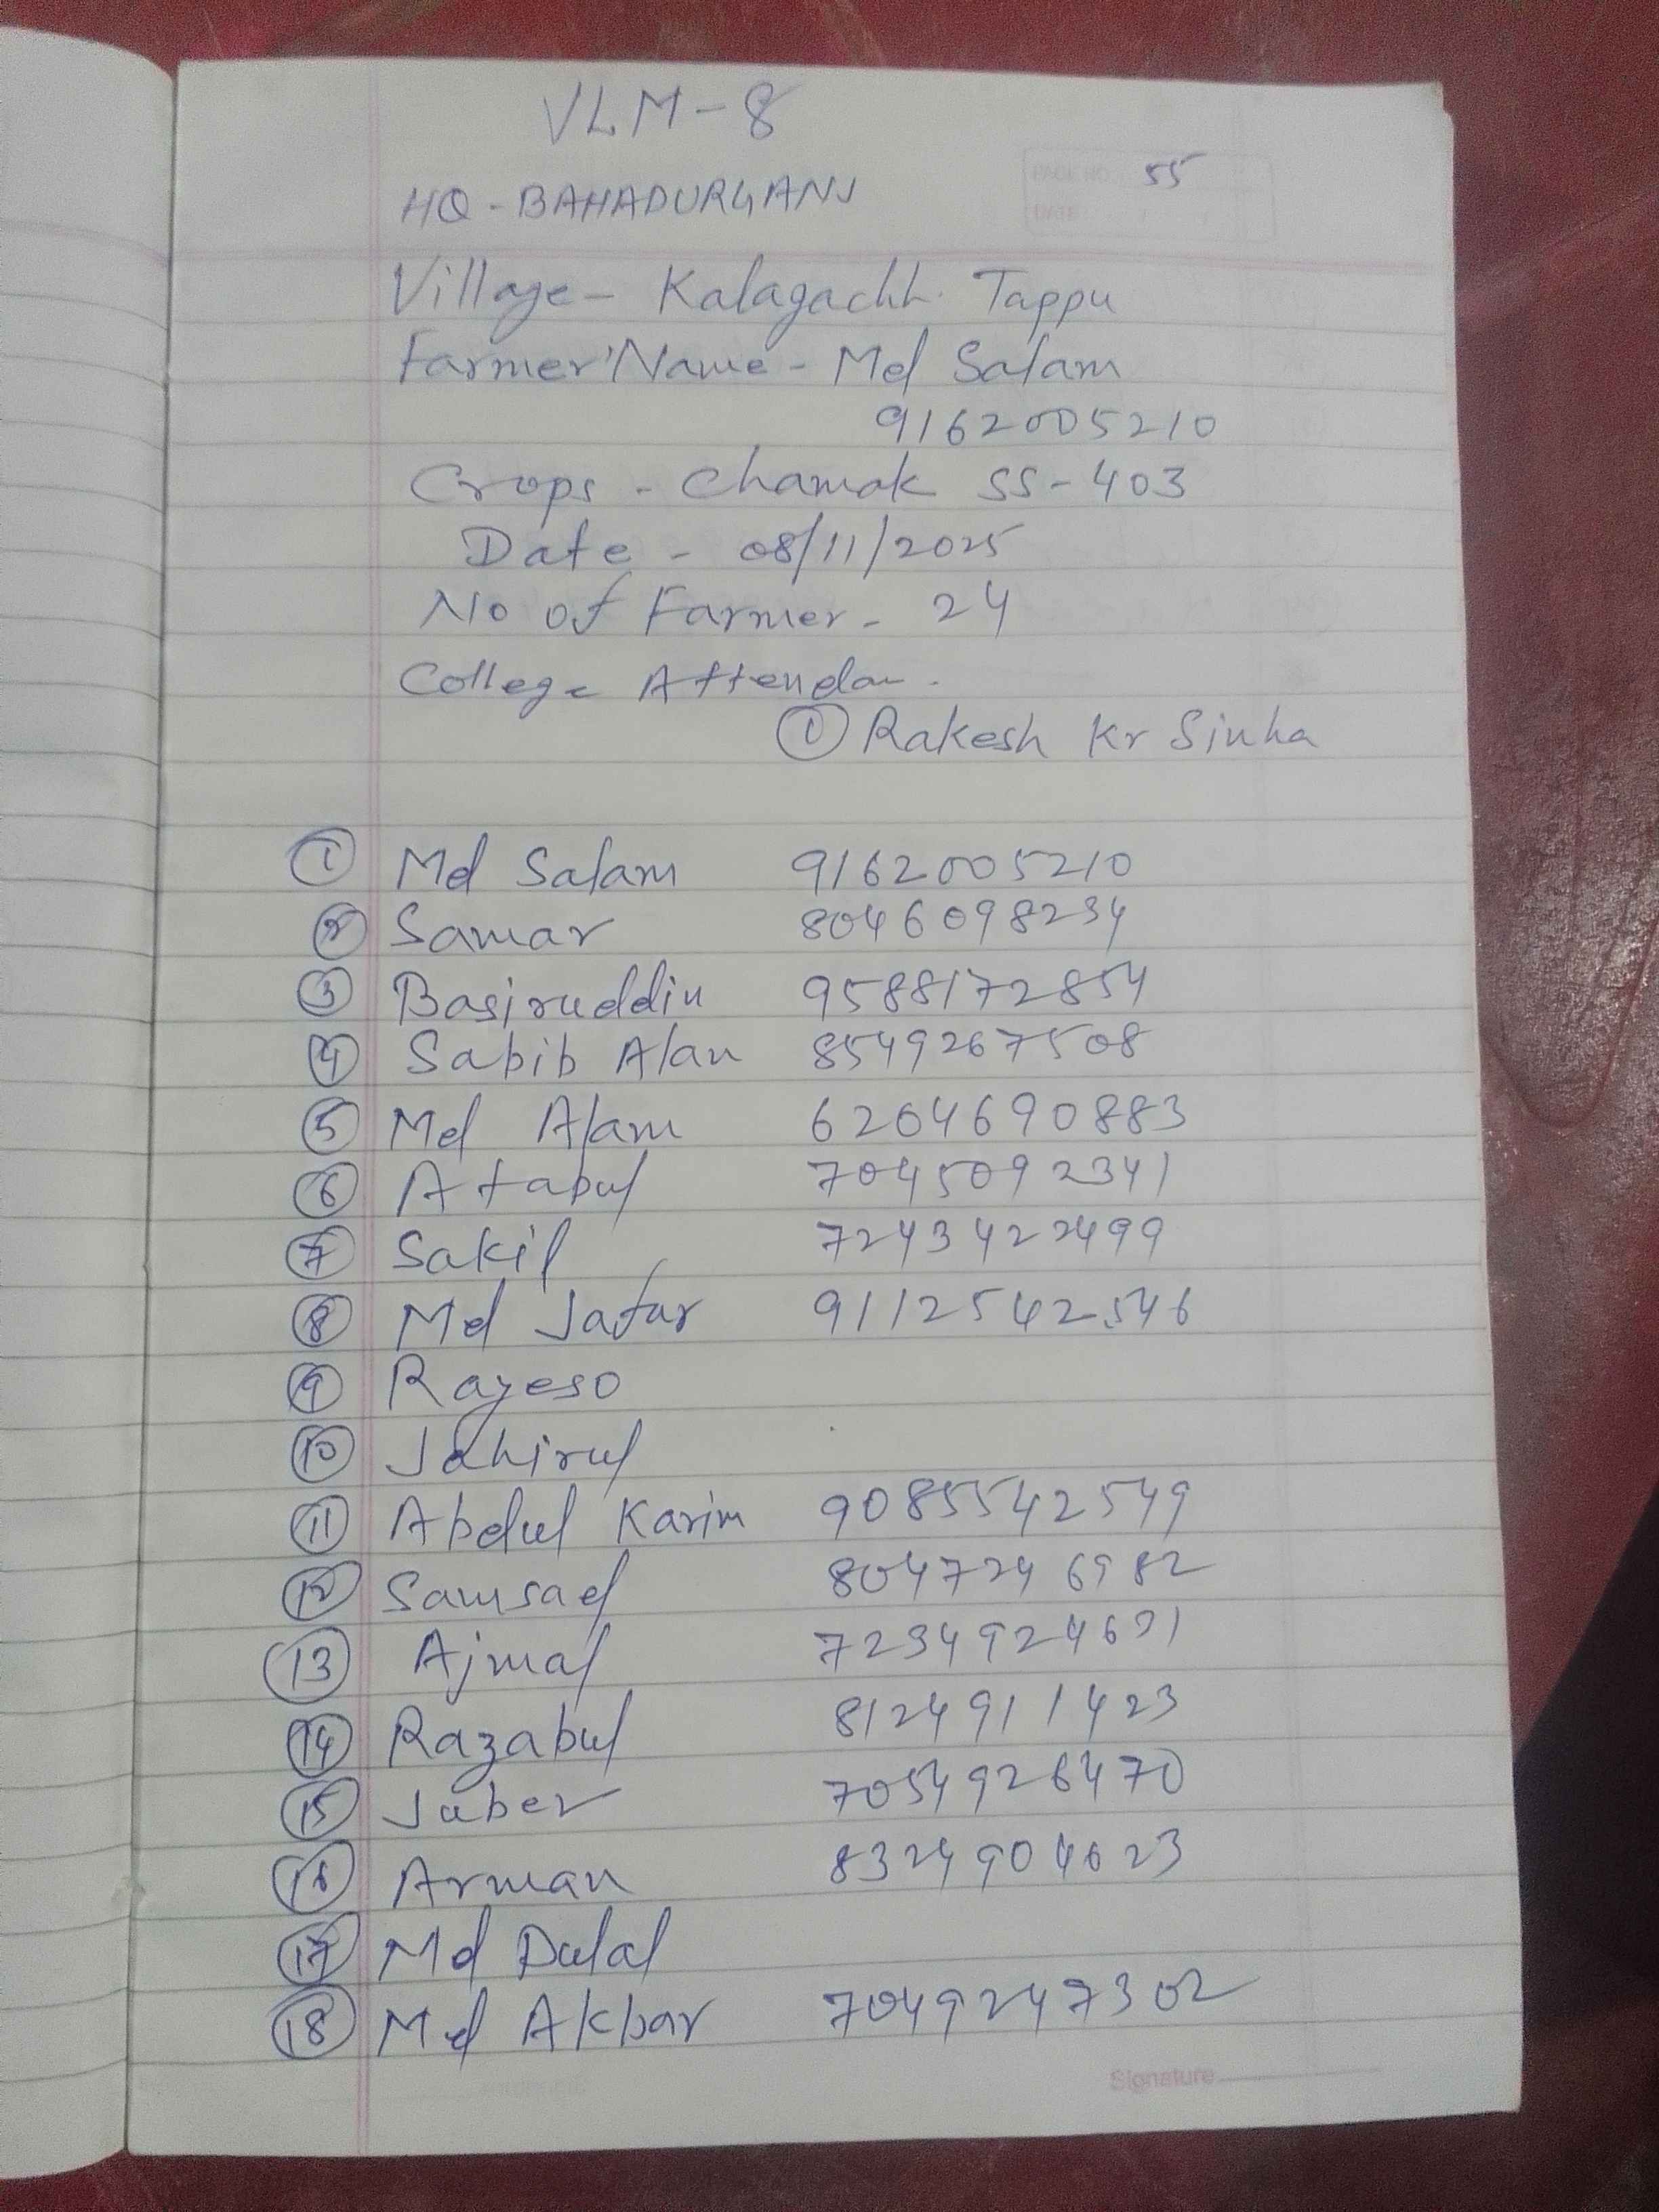 VLM-8
PAGE NO. 55
HQ - BAHADURGANJ
DATE: / /
Village - Kalagachh. Tappu
Farmer'Name - Md Salam
9162005210
Crops - Chamak SS-403
Date - 08/11/2025
No of Farmer - 24
College Attendan.
① Rakesh Kr Sinha
① Md Salam 9162005210
② Samar 8046098234
③ Basiruddin 9588172854
④ Sabib Alan 8549267508
⑤ Md Alam 6204690883
⑥ Atabul 7045092341
⑦ Sakil 7243422499
⑧ Md Jafar 9112542546
⑨ Rayeso
⑩ Jahirul
⑪ Abdul Karim 9085542549
⑫ Samsad 8047246982
⑬ Ajmal 7234924691
⑭ Razabul 8124911423
⑮ Jaber 7054926470
⑯ Arman 8324904623
⑰ Md Dulal
⑱ Md Akbar 7049247302
Signature